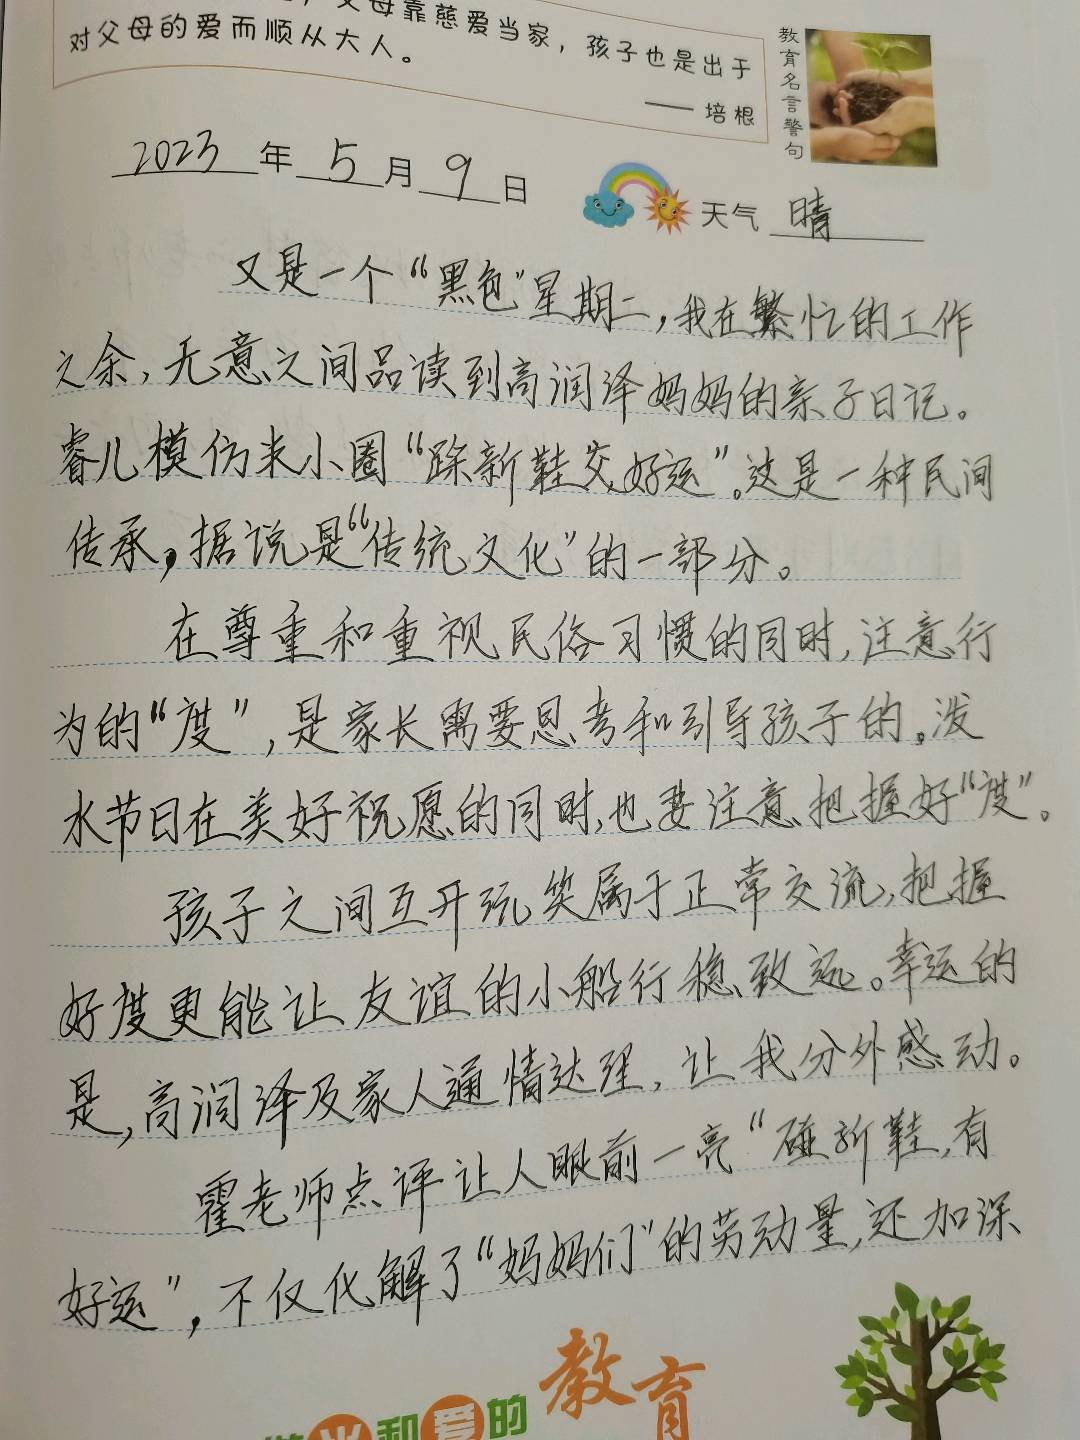 父母靠慈爱当家，孩子也是出于
对父母的爱而顺从大人。
—— 培根
教育名言警句
2023年5月9日
天气 晴
又是一个“黑色”星期二，我在繁忙的工作
之余，无意之间品读到高润泽妈妈的亲子日记。
睿儿模仿来小圈“踩新鞋交好运”。这是一种民间
传承，据说是“传统文化”的一部分。
在尊重和重视民俗习惯的同时，注意行
为的“度”，是家长需要思考和引导孩子的。泼
水节日在美好祝愿的同时，也要注意把握好“度”。
孩子之间互开玩笑属于正常交流，把握
好度更能让友谊的小船行稳致远。幸运的
是，高润泽及家人通情达理，让我分外感动。
霍老师点评让人眼前一亮“碰新鞋，有
好运”，不仅化解了“妈妈们”的劳动量，还加深
和爱的教育